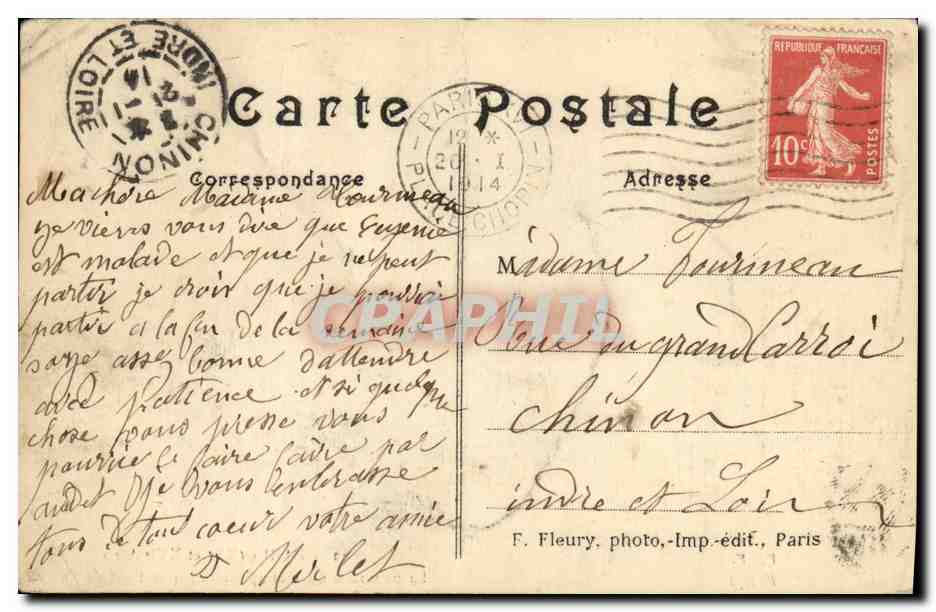 CHINON
INDRE ET LOIRE
Carte Postale
PARIS XVI
12 *
20 - I
1914
PL. CHOPIN
REPUBLIQUE FRANÇAISE
10c
POSTES
Correspondance
Adresse
Ma chère Madame Fourmeau
je viens vous dire que Eugenie
est malade et que je ne peut
partir je crois que je poussai
partir a la fin de la semaine
soyze assez bonne d'attendre
avec patience et si quelque
chose vous presse vous
pourrie le faire faire par
Je vous enbrasse
tous de tout coeur votre amie
Madame Fourmeau
Rue du grand Carroi
chinon
indre et Loire
CARAPHIL
F. Fleury, photo.-Imp.-édit., Paris